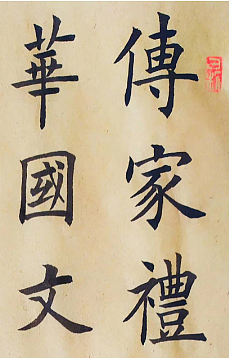 傳家禮
華國文